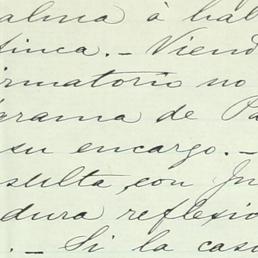 alma á hal
finca.- Viend
irmatorio no
grama de Pa
su encargo.-
sulta, con Ju
dura reflexio
.- Si la cas